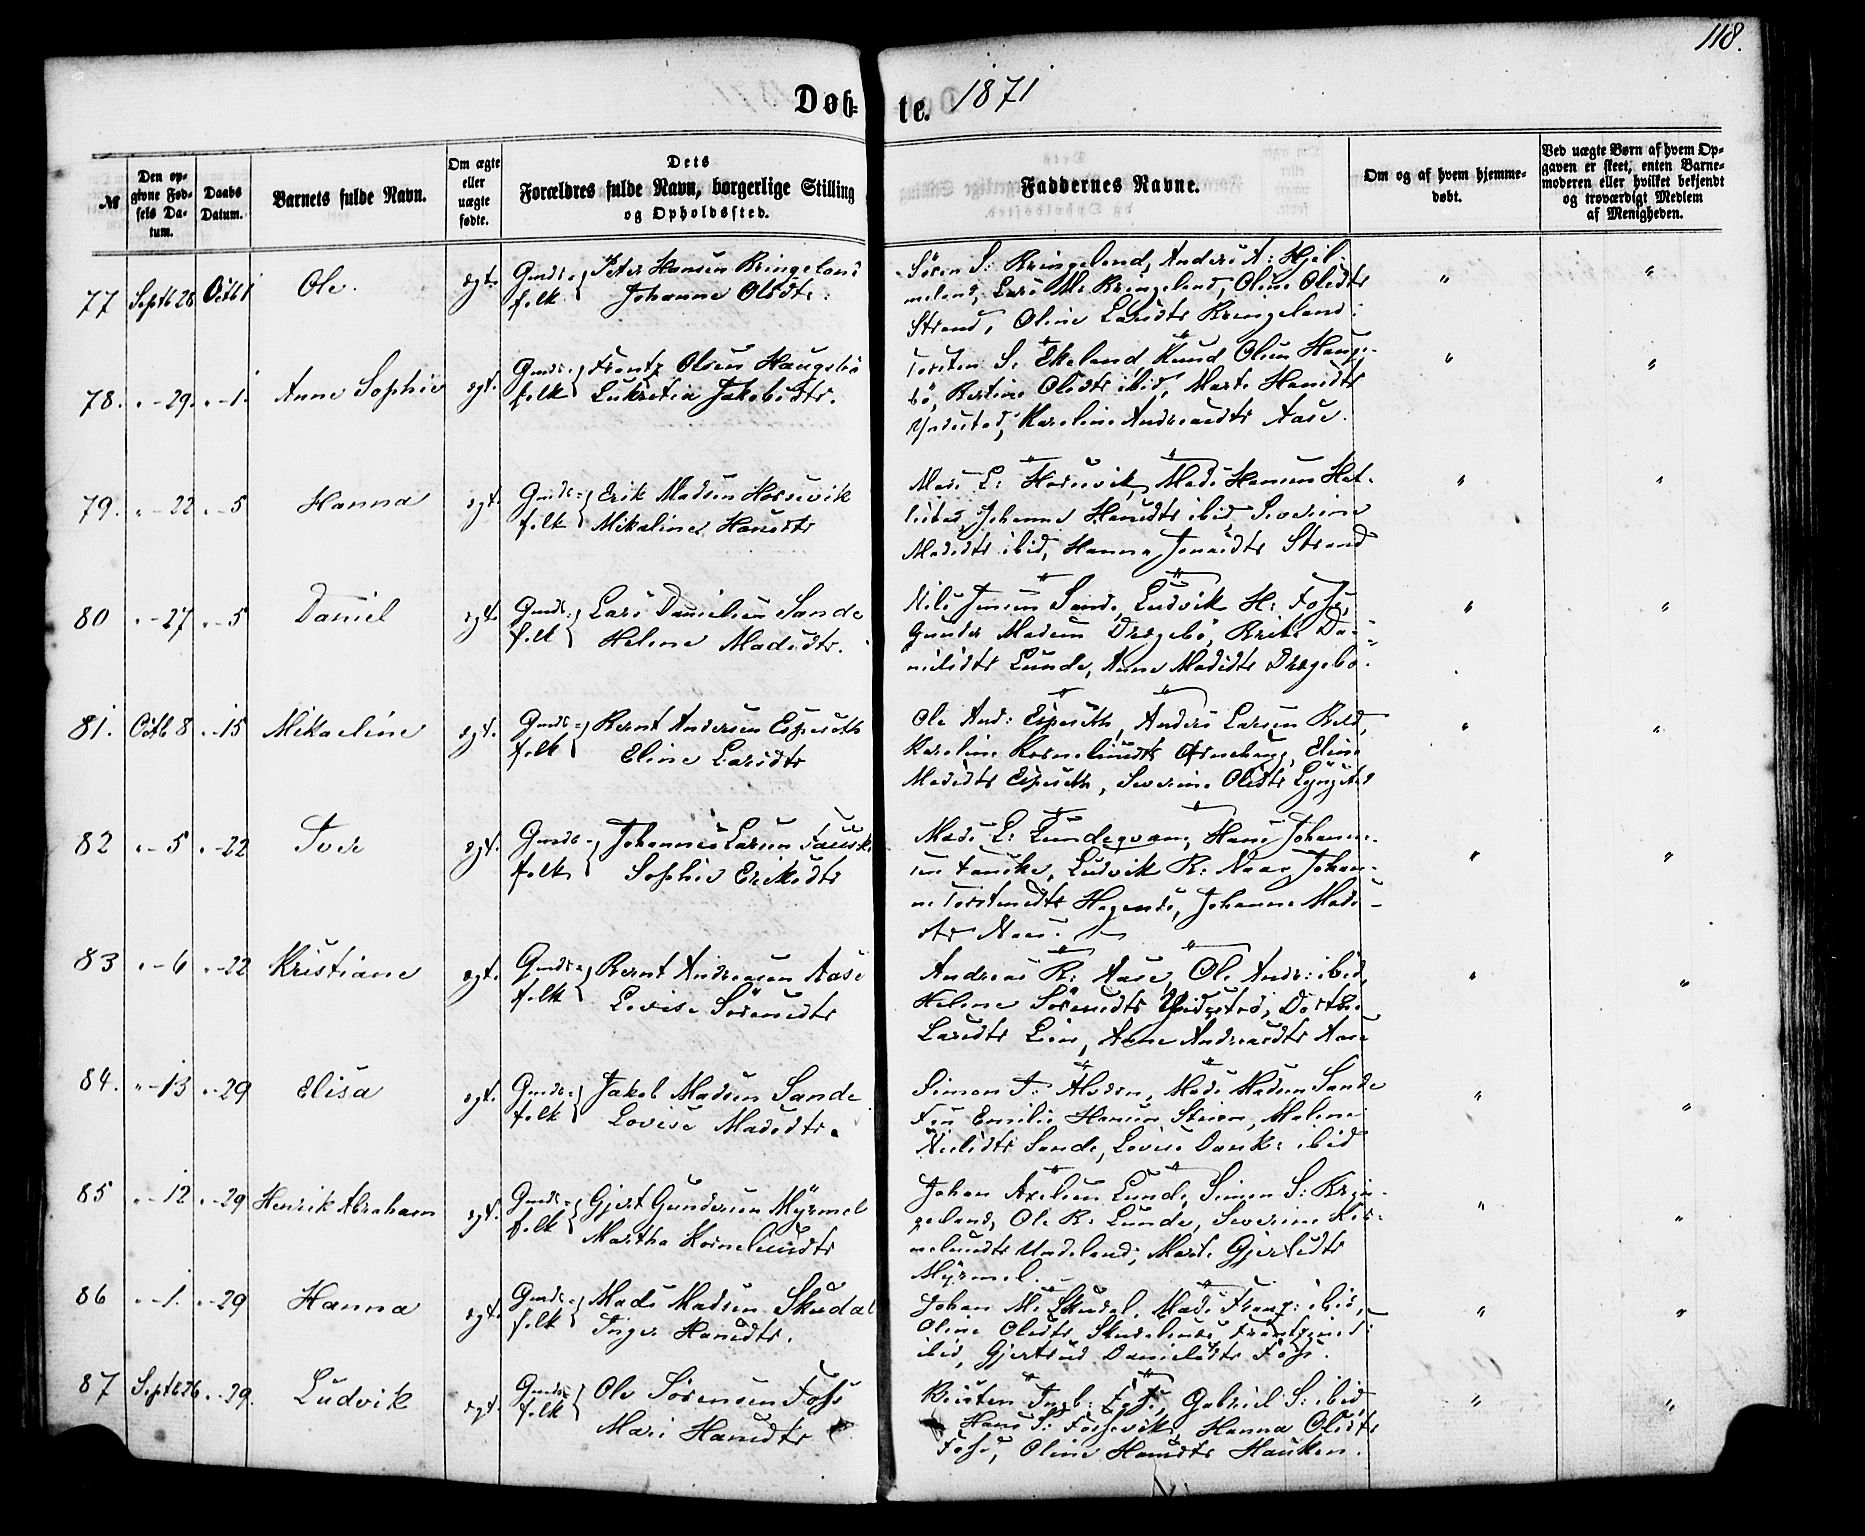 118.
Døb-te. 1871
№
Den op-
givne Fød-
sels Da-
tum.
Daabs
Datum.
Barnets fulde Navn.
Om ægte
eller
uægte
fødte.
Dets
Forældres fulde Navn, borgerlige Stilling
og Opholdssted.
Faddernes Navne.
Om og af hvem hjemme-
døbt.
Ved uægte Børn af hvem Op-
gaven er skeet, enten Barne-
moderen eller hvilket bekjendt
og troværdigt Medlem
af Menigheden.
77 Septb 28 Octb 1 Ole. egt. Gmds-
folk { Peter Hansen Kringeland
Johanne Olsdtr.
Sören S: Kringeland, Anders A: Hjel-
meland, Lars M: Kringeland, Oline Olsdtr
Strand, Oline Larsdtr Kringeland.
" "
78. " - 29. " - 1. Anne Sophie egt. Gmds-
folk { Frantz Olsen Haugsbö
Lukretia Jakobsdtr.
Torsten S. Ekeland, Knud Olsen Haugs-
bö, Bertine Olsdtr ibid, Marte Hansdtr
Yndestad, Karoline Andreasdtr Aase.
" "
79. " - 22 " - 5 Hanna egt. Gmds-
folk { Erik Madsen Horsevik
Mikaline Hansdtr
Mads E: Horsevik, Mads Hansen Hat-
lestad, Johanne Hansdtr ibid, Severine
Madsdtr ibid, Hanna Jonasdtr Strand
" "
80 " - 27 " - 5 Daniel egt. Gmds-
folk { Lars Danielsen Sande
Helene Madsdtr.
Nils Jensen Sande, Ludvik H: Foss,
Gunder Madsen Drægebö, Brite Da-
nielsdtr Lunde, Anne Madsdtr Drægebö.
" "
81. Octb 8 " - 15 Mikaeline egt. Gmds-
folk { Bernt Andersen Espeseth
Eline Larsdtr
Ole And: Espeseth, Anders Larsen Beld,
Karoline Korneliusdtr Osnehaug, Eline
Madsdtr Espeseth, Severine Olsdtr Lyngstad
" "
82 " - 5 " - 22 Iver egt. Gmds-
folk { Johannes Larsen Fauske
Sophie Eriksdtr
Mads L: Lundeqvam, Hans Johanne-
sen Fauske, Ludvik R: Naae, Johan-
ne Torstensdtr Hagends, Johanne Mads-
dtr Naae.
" "
83 " - 6 " - 22 Kristiane egt. Gmds-
folk { Bernt Andreasen Aase
Lovise Sörensdtr
Andreas R: Aase, Ole Andr: ibid,
Helene Sörensdtr Yndestad, Dorthe
Larsdtr Lien, Anne Andreasdtr Aase
" "
84. " - 13 " - 29 Elisa egt. Gmds-
folk { Jakob Madsen Sande
Lovise Madsdtr.
Simon J: Alværn, Mads Madsen Sande
Frü Emilie Hansen Steien, Malene
Nielsdtr Sande, Lovise Dank: ibid
" "
85 " - 12 " - 29 Henrik Abraham egt. Gmds-
folk { Gjert Gundersen Myrmel
Martha Korneliusdtr
Johan Axelsen Lunde, Simon S: Krin-
geland, Ole R: Lunde, Severine Kor-
neliusdtr Undeland, Marte Gjertsdtr
Myrmel.
" "
86 " - 1. " - 29 Hanna egt. Gmds-
folk { Mads Madsen Skudal
Inger Hansdtr.
Johan M: Skudal, Mads Frantz: ibid,
Oline Olsdtr
ibid, Gjertrud Danielsdtr Foss.
" "
87 Septb 26 " - 29. Ludvik egt. Gmds-
folk { Ole Sørensen Foss
Mari Hansdtr
Beisten Ingb: Foss, Gabriel S: ibid,
Hans S: Fossevik, Hanna Olsdtr
Foss, Oline Hansdtr Hauken.
" "